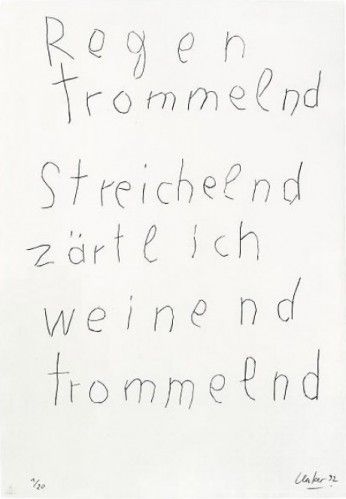 Regen
trommelnd
Streichelnd
zärtlich
weinend
trommelnd
1/20 Uecker 92